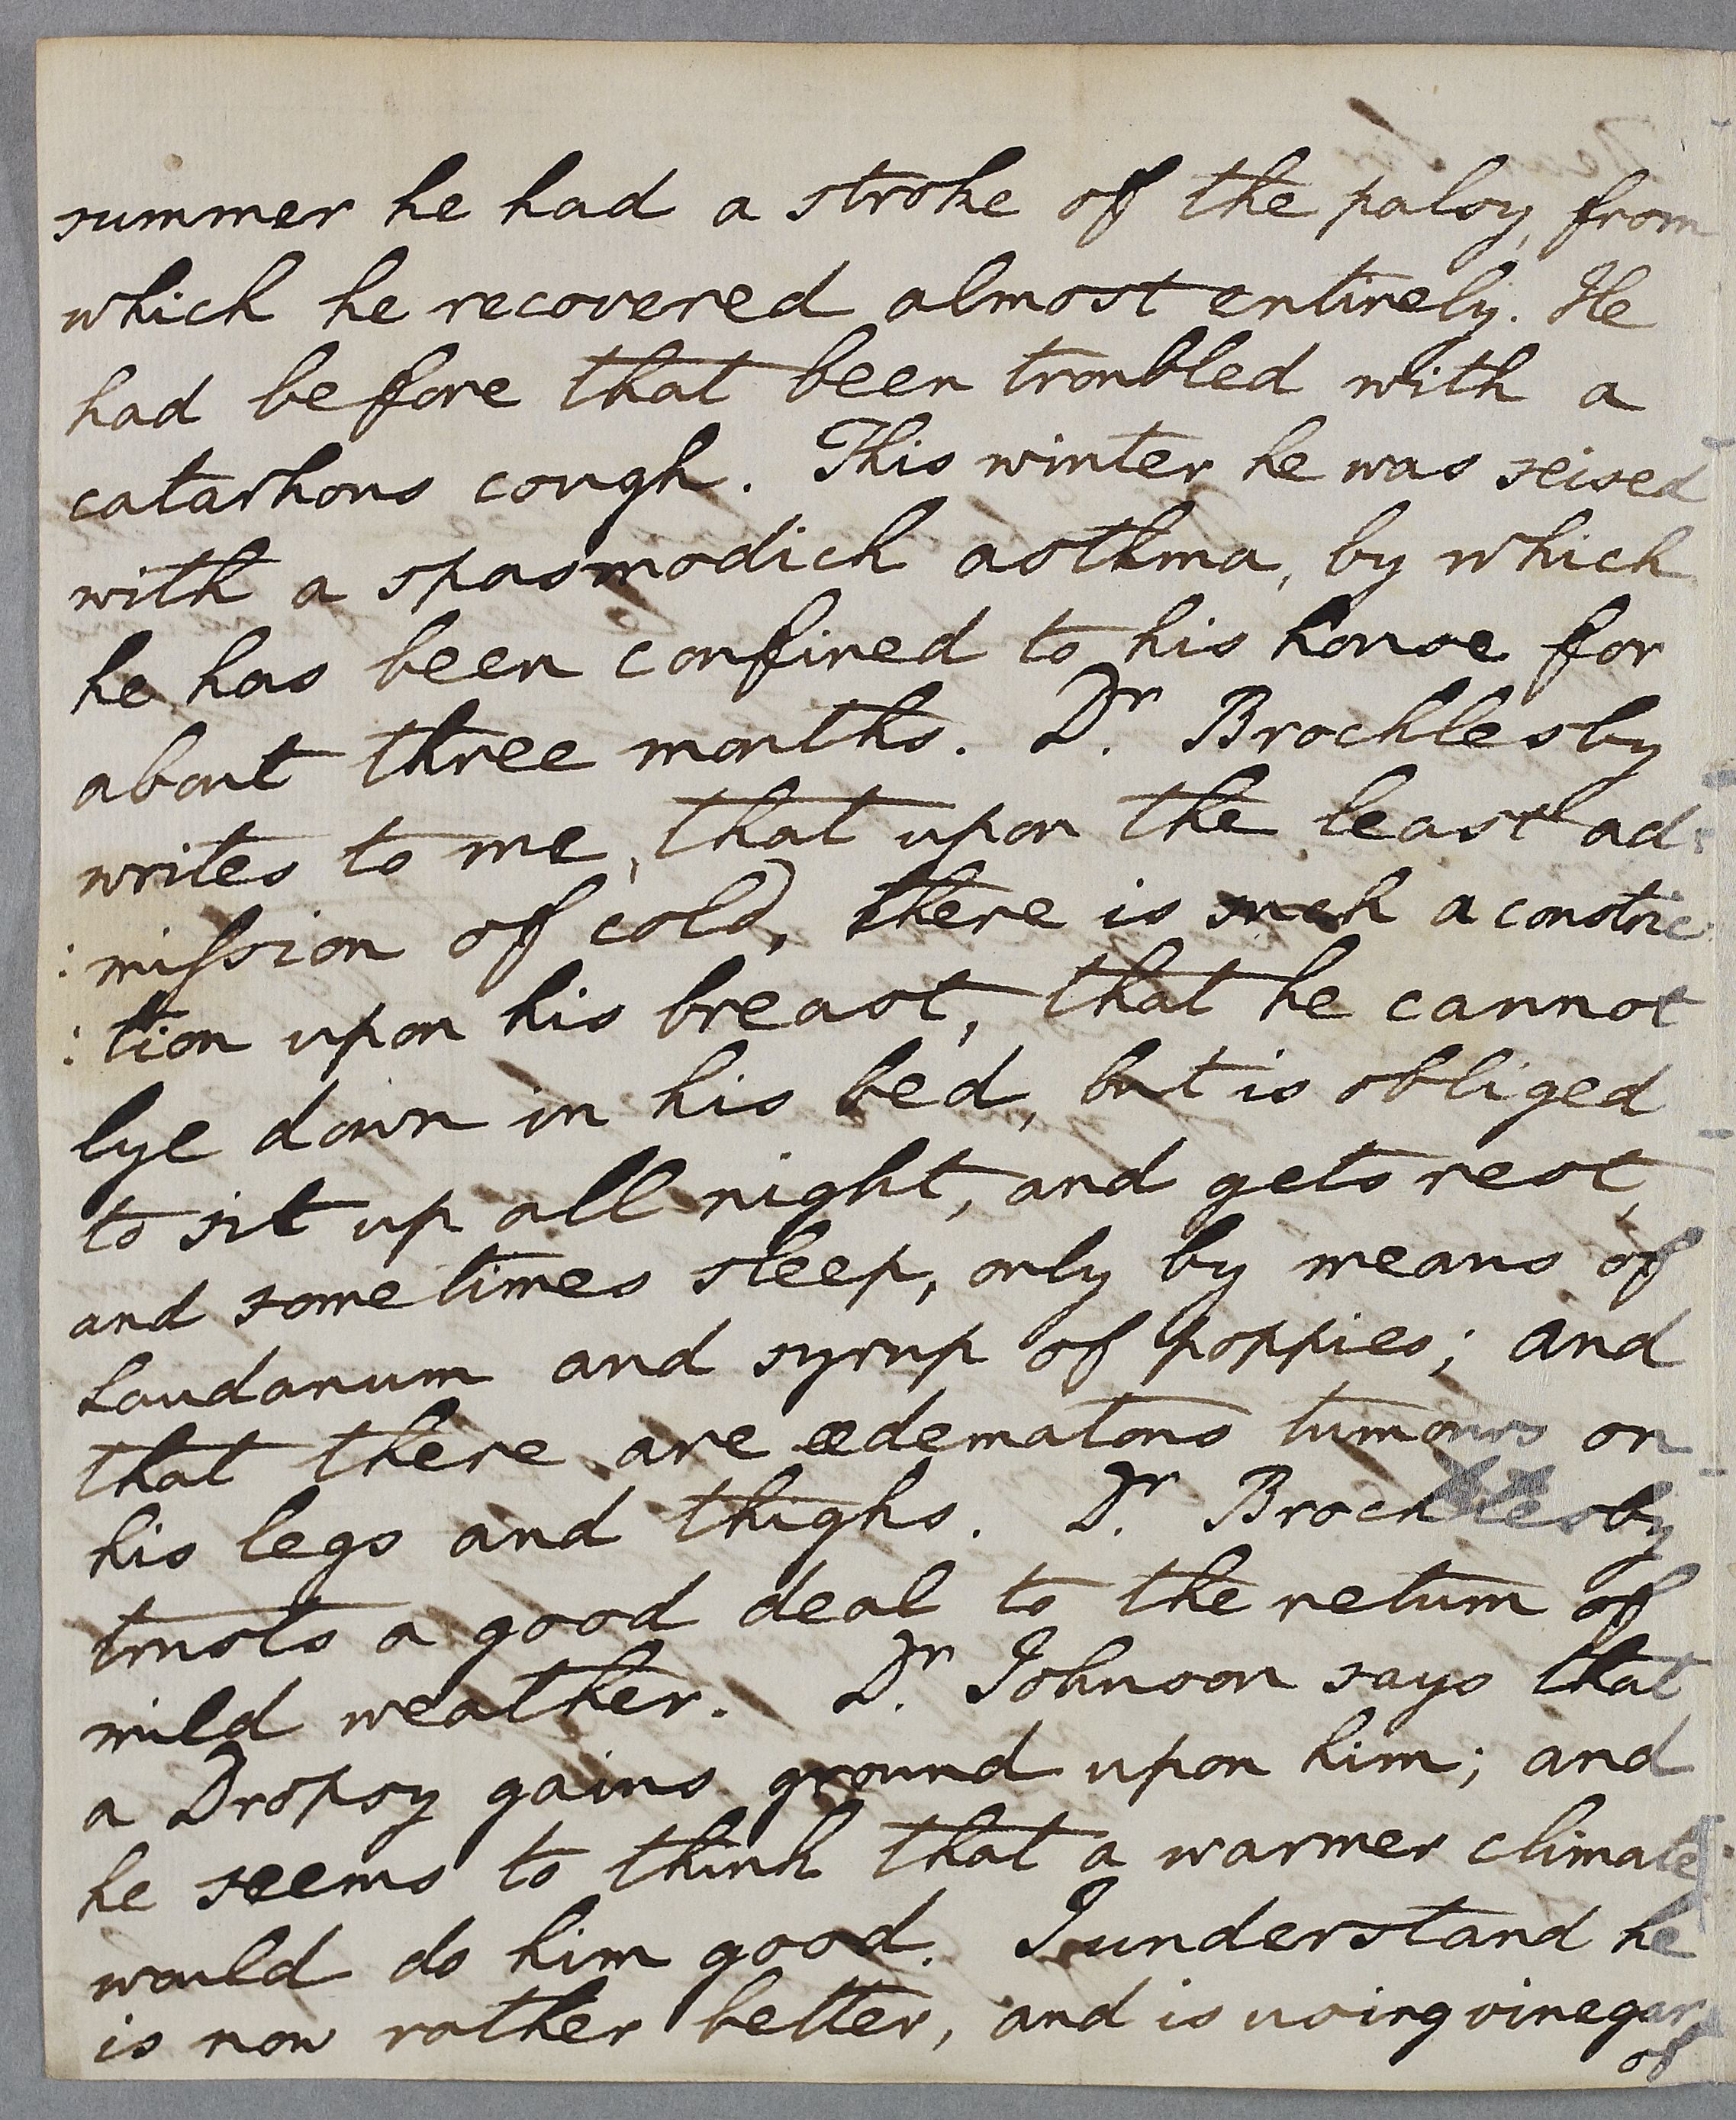 summer he had a stroke of the palsy, from
which he recovered almost entirely. He
had before that been troubled with a
catarhous cough. This winter he was seised
with a spasmodick asthma, by which
he has been confined to his house for
about three months. Dr. Brocklesby
writes to me, that upon the least ad:
:mission of cold, there is such a constric:
:tion upon his breast, that he cannot
lye down in his bed, but is obliged
to sit up all night, and gets rest,
and sometimes sleep, only by means of
laudanum and syrup of poppies; and
that there are œdematous tumours on
his legs and thighs. Dr. Brocklesby
trusts a good deal to the return of
mild weather. Dr. Johnson says that
a Dropsy gains ground upon him; and
he seems to think that a warmer climate
would do him good. I understand he
is now rather better, and is using vinegar
of